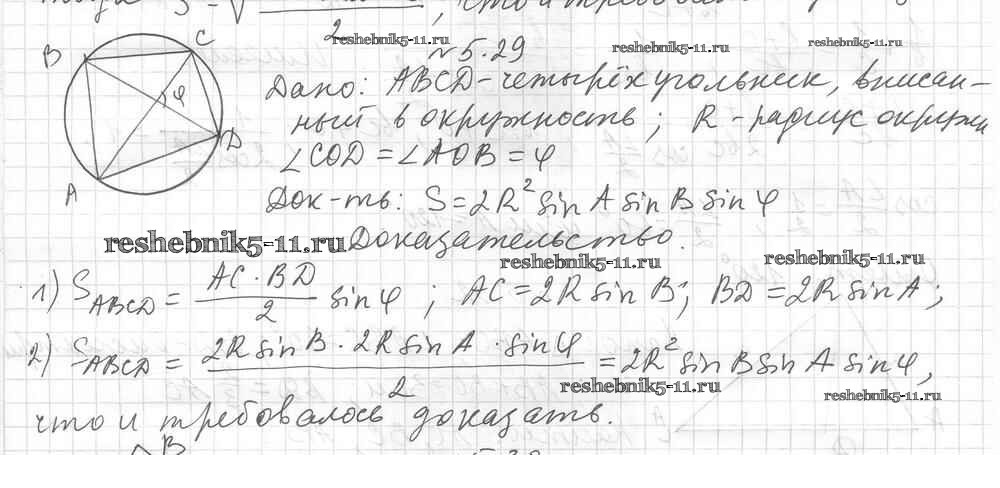 2
reshebnik5-11.ru
reshebnik5-11.ru
reshebnik5-11.ru
№ 5.29
B
C
φ
D
A
Дано: ABCD - четырёхугольник, вписан-
ный в окружность; R - радиус окружн
∠COD = ∠AOB = φ
Док-ть: S = 2R² sin A sin B sin φ
reshebnik5-11.ru Доказательство.
reshebnik5-11.ru
reshebnik5-11.ru
1) S_ABCD = AC · BD / 2 sin φ ; AC = 2R sin B; BD = 2R sin A;
2) S_ABCD = 2R sin B · 2R sin A · sin φ / 2 = 2R² sin B sin A sin φ,
reshebnik5-11.ru
reshebnik5-11.ru
что и требовалось доказать.
B